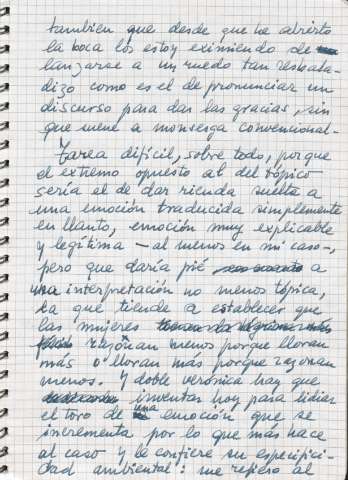 tambien que desde que he abierto
la boca los estoy eximiendo de
lanzarse a un ruedo tan resbala-
dizo como es el de pronunciar un
discurso para dar las gracias, sin
que suene a monserga convencional.-
Tarea difícil, sobre todo, porque
el extremo opuesto al del tópico
sería el de dar rienda suelta a
una emoción traducida simplemente
en llanto, emoción muy explicable
y legítima —al menos en mi caso—,
pero que daría pié a
una interpretación no menos tópica,
la que tiende a establecer que
las mujeres
razonan menos porque lloran
más o lloran más porque razonan
menos. Y doble verónica hay que
inventar hoy para lidiar
el toro de una emoción que se
incrementa por lo que más hace
al caso y le confiere su especifici-
dad ambiental: me refiero al